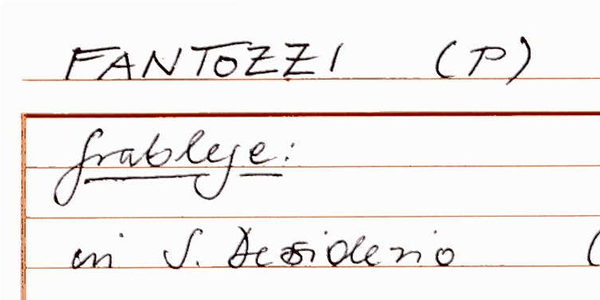 FANTOZZI (P)
grablege:
in S. Desiderio (